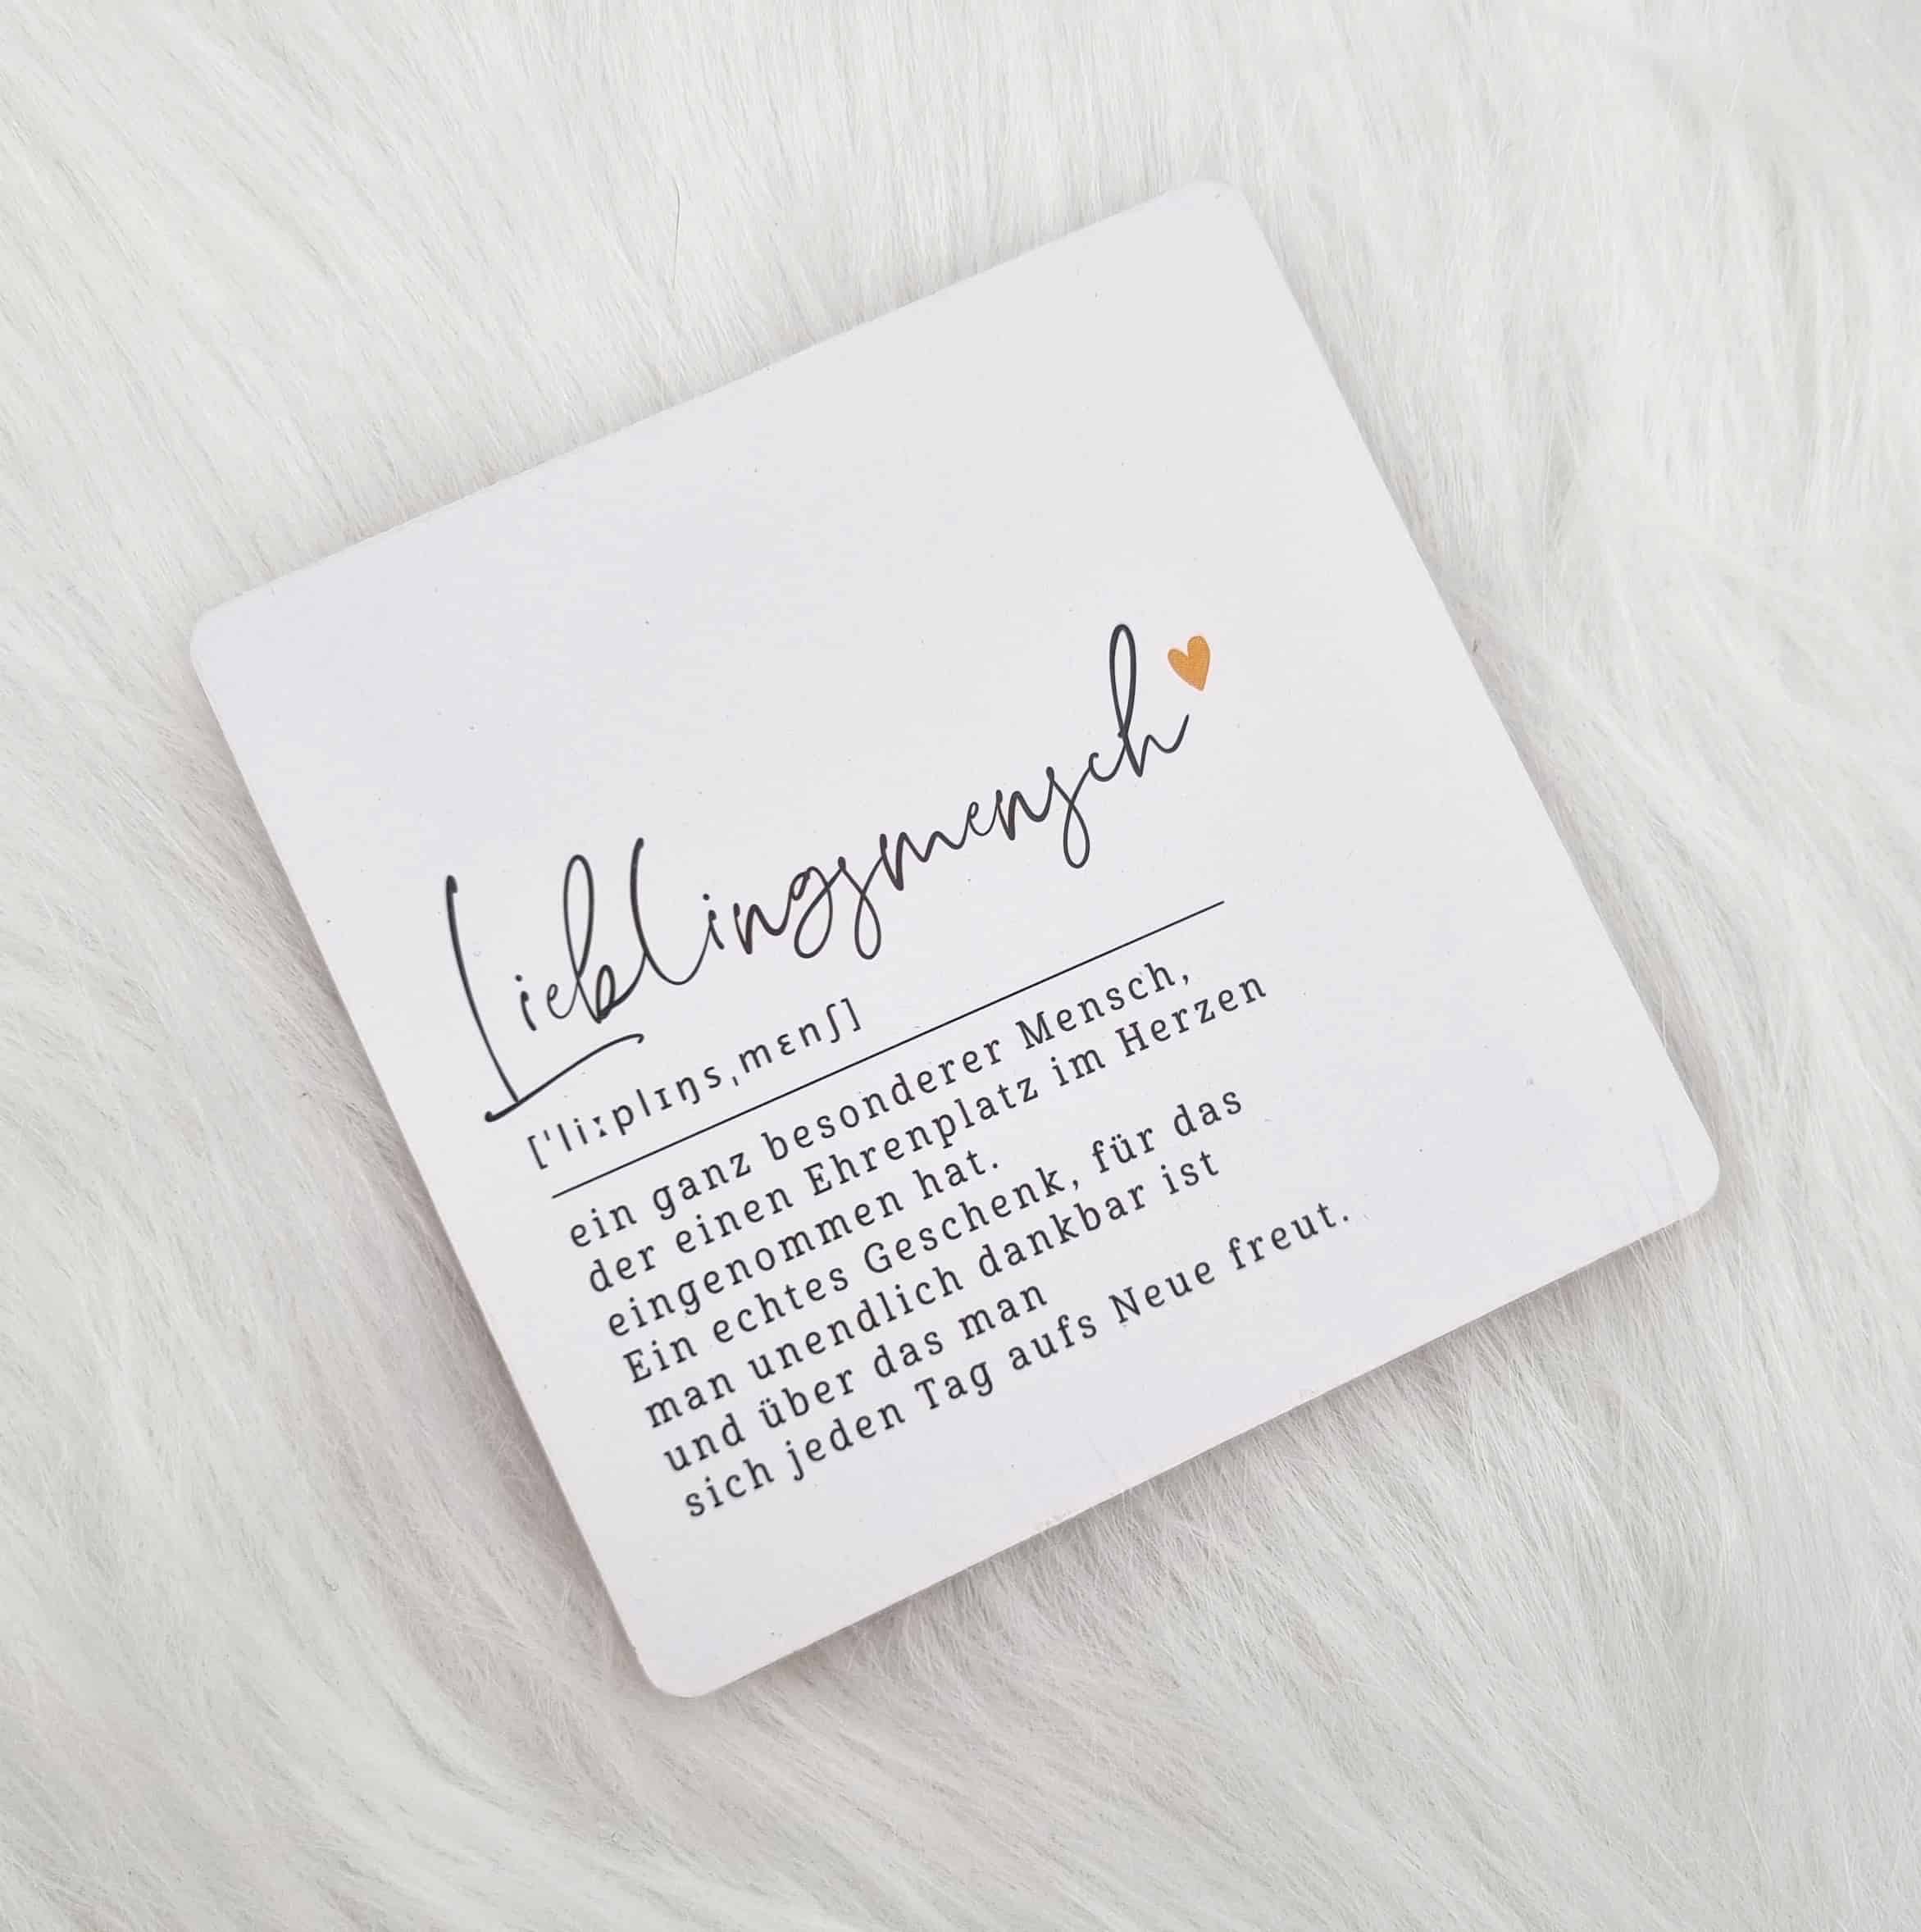 Lieblingsmensch
[ˈliːplɪŋsˌmɛnʃ]
ein ganz besonderer Mensch,
der einen Ehrenplatz im Herzen
eingenommen hat.
Ein echtes Geschenk, für das
man unendlich dankbar ist
und über das man
sich jeden Tag aufs Neue freut.